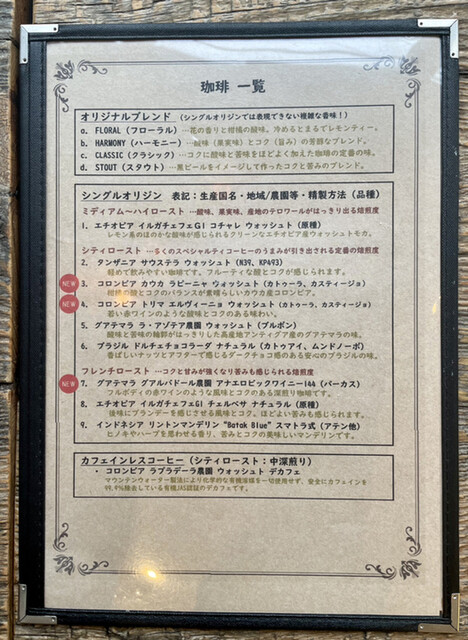 珈琲 一覧
オリジナルブレンド (シングルオリジンでは表現できない複雑な香味!)
a. FLORAL (フローラル) …花の香りと柑橘の酸味。冷めるとまるでレモンティー。
b. HARMONY (ハーモニー) …酸味(果実味)とコク(旨み)の芳醇なブレンド。
c. CLASSIC (クラシック) …コクに酸味と苦味をほどよく加えた珈琲の定番の味。
d. STOUT (スタウト) …黒ビールをイメージして作ったコクと苦みのブレンド。
シングルオリジン 表記:生産国名・地域/農園等・精製方法(品種)
ミディアム〜ハイロースト …酸味、果実味、産地のテロワールがはっきり出る焙煎度
1. エチオピア イルガチェフェG1 コチャレ ウォッシュト (原種)
レモン系のほのかな酸味が感じられるクリーンなエチオピア産ウォッシュトモカ。
シティロースト …多くのスペシャルティコーヒーのうまみが引き出される定番の焙煎度
2. タンザニア サウステラ ウォッシュト (N39、KP493)
軽めで飲みやすい珈琲です。フルーティな酸とコクが感じられます。
NEW
3. コロンビア カウカ ラビーニャ ウォッシュト (カトゥーラ、カスティージョ)
柑橘の酸とコクのバランスが素晴らしいカウカ産コロンビア。
NEW
4. コロンビア トリマ エルヴィーニョ ウォッシュト (カトゥーラ、カスティージョ)
若い赤ワインのような酸味とコクのある味わい。
5. グアテマラ ラ・アゾテア農園 ウォッシュト (ブルボン)
酸味と苦味の輪郭がはっきりした高産地アンティグア産のグアテマラの味。
6. ブラジル ドルチェチョコラーダ ナチュラル (カトゥアイ、ムンドノーボ)
香ばしいナッツとアフターで感じるダークチョコ感のある安心のブラジルの味。
フレンチロースト …コクと甘みが強くなり苦みも感じられる焙煎度
NEW
7. グアテマラ グアルバドール農園 アナエロビックワイニー144 (パーカス)
フルボディの赤ワインのような風味とコクのある深煎り珈琲です。
8. エチオピア イルガチェフェG1 チェルベサ ナチュラル (原種)
後味にブランデーを感じさせる風味とコク。ほどよい苦みも感じられます。
9. インドネシア リントンマンデリン "Batak Blue" スマトラ式 (アテン他)
ヒノキやハーブを思わせる香り、苦みとコクの美味しいマンデリンです。
カフェインレスコーヒー (シティロースト:中深煎り)
・ コロンビア ラプラデーラ農園 ウォッシュト デカフェ
マウンテンウォーター製法により化学的な有機溶媒を一切使用せず、安全にカフェインを
99.9%除去している有機JAS認証のデカフェです。